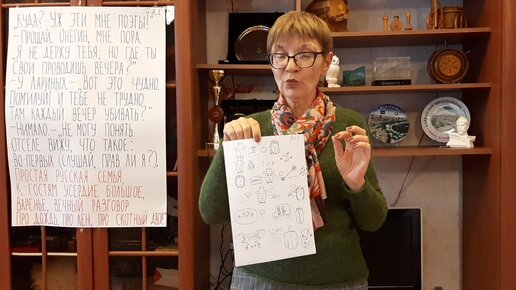 „КУДА? УЖ ЭТИ МНЕ ПОЭТЫ!“
–ПРОЩАЙ, ОНЕГИН, МНЕ ПОРА.
„Я НЕ ДЕРЖУ ТЕБЯ; НО ГДЕ ТЫ
СВОИ ПРОВОДИШЬ ВЕЧЕРА?“
–У ЛАРИНЫХ.–„ВОТ ЭТО ЧУДНО.
ПОМИЛУЙ! И ТЕБЕ НЕ ТРУДНО
ТАМ КАЖДЫЙ ВЕЧЕР УБИВАТЬ?“
–НИМАЛО.–„НЕ МОГУ ПОНЯТЬ.
ОТСЕЛЕ ВИЖУ, ЧТО ТАКОЕ:
ВО-ПЕРВЫХ (СЛУШАЙ, ПРАВ ЛИ Я?),
ПРОСТАЯ РУССКАЯ СЕМЬЯ,
К ГОСТЯМ УСЕРДИЕ БОЛЬШОЕ,
ВАРЕНЬЕ, ВЕЧНЫЙ РАЗГОВОР
ПРО ДОЖДЬ, ПРО ЛЕН, ПРО СКОТНЫЙ ДВОР“